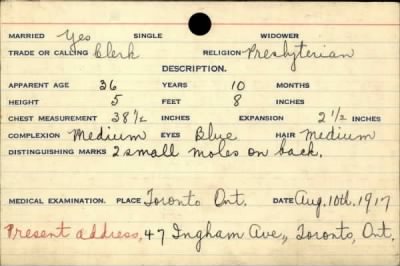 MARRIED Yes SINGLE WIDOWER
TRADE OR CALLING Clerk RELIGION Presbyterian
DESCRIPTION.
APPARENT AGE 36 YEARS 10 MONTHS
HEIGHT 5 FEET 8 INCHES
CHEST MEASUREMENT 38½ INCHES EXPANSION 2½ INCHES
COMPLEXION Medium EYES Blue HAIR Medium
DISTINGUISHING MARKS 2 small moles on back.
MEDICAL EXAMINATION. PLACE Toronto Ont. DATE Aug. 10th. 1917
Present address, 47 Ingham Ave., Toronto, Ont.